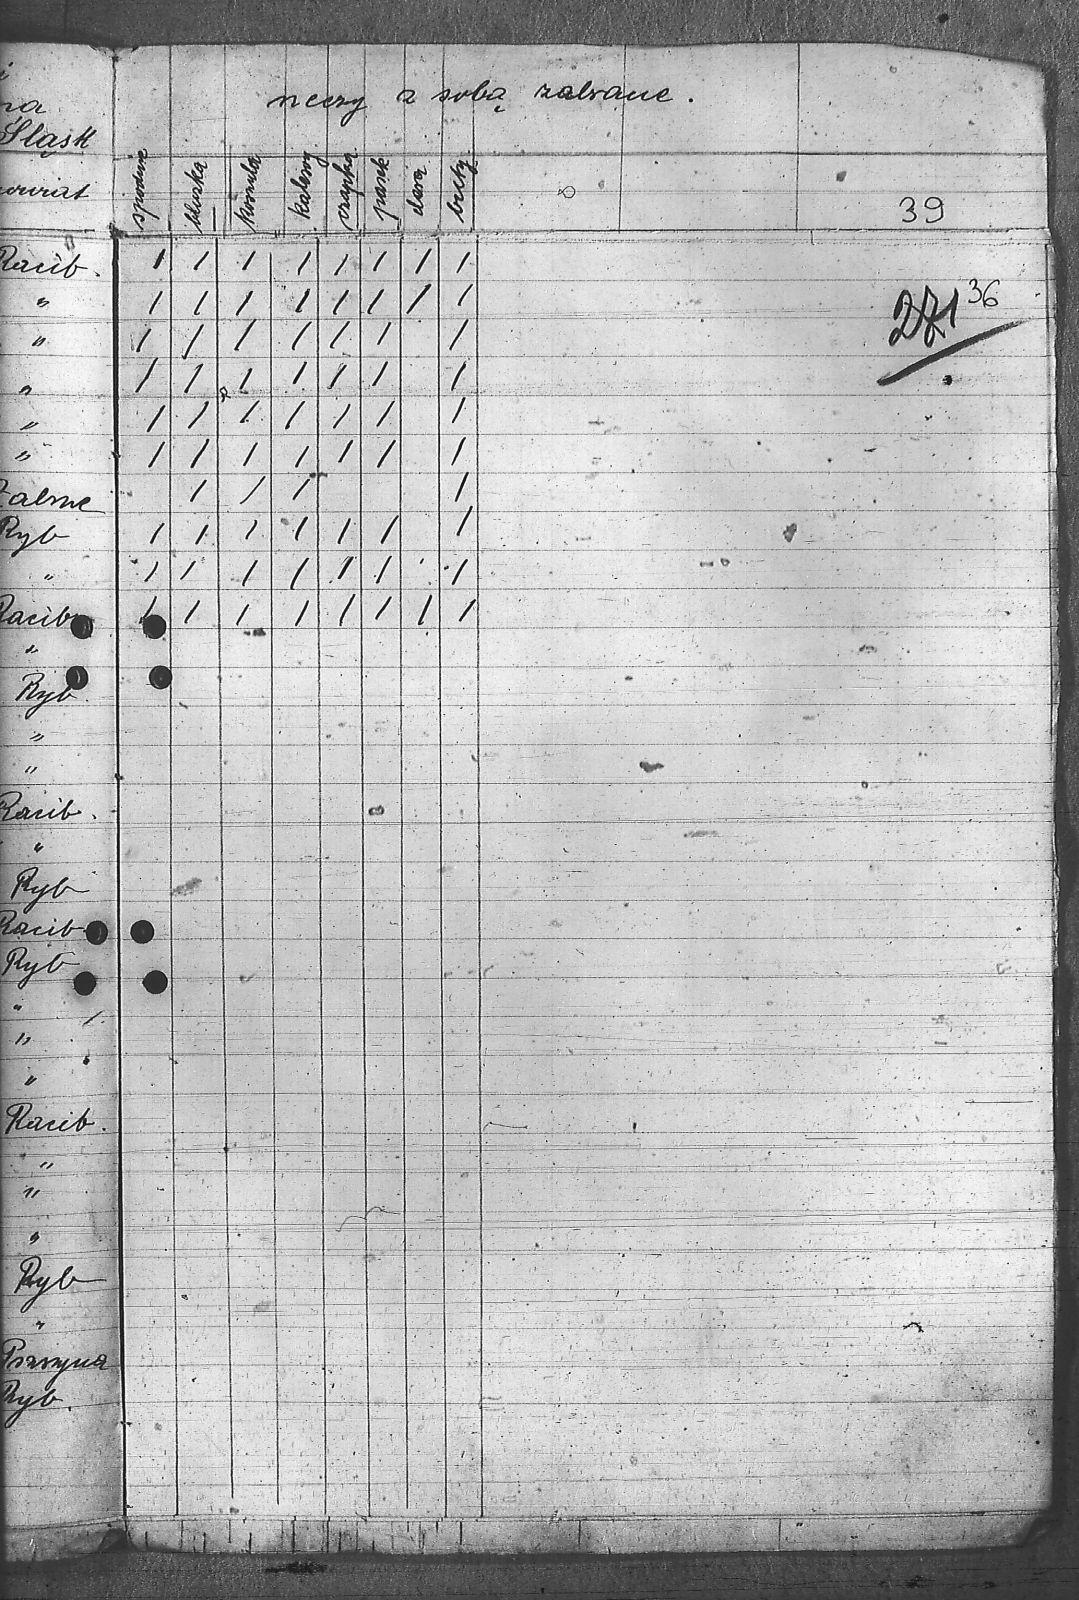 rzeczy z sobą zabrane.
na
Śląsk
powiat
spodnie bluzka koszula kalesony czapka pasek buty
39
Racib. 1 1 1 1 1 1 1 1
" 1 1 1 1 1 1 1 1
271 36
" 1 1 1 1 1 1 1
" 1 1 1 1 1 1 1
" 1 1 1 1 1 1 1
" 1 1 1 1 1 1 1
1 1 1 1
Ryb 1 1 1 1 1 1 1
" 1 1 1 1 1 1 1
Racib. 1 1 1 1 1 1 1 1
"
Ryb.
"
"
Racib.
"
Ryb
Racib.
Ryb
"
"
"
Racib.
"
"
"
Ryb
"
Pszczyna
Ryb.